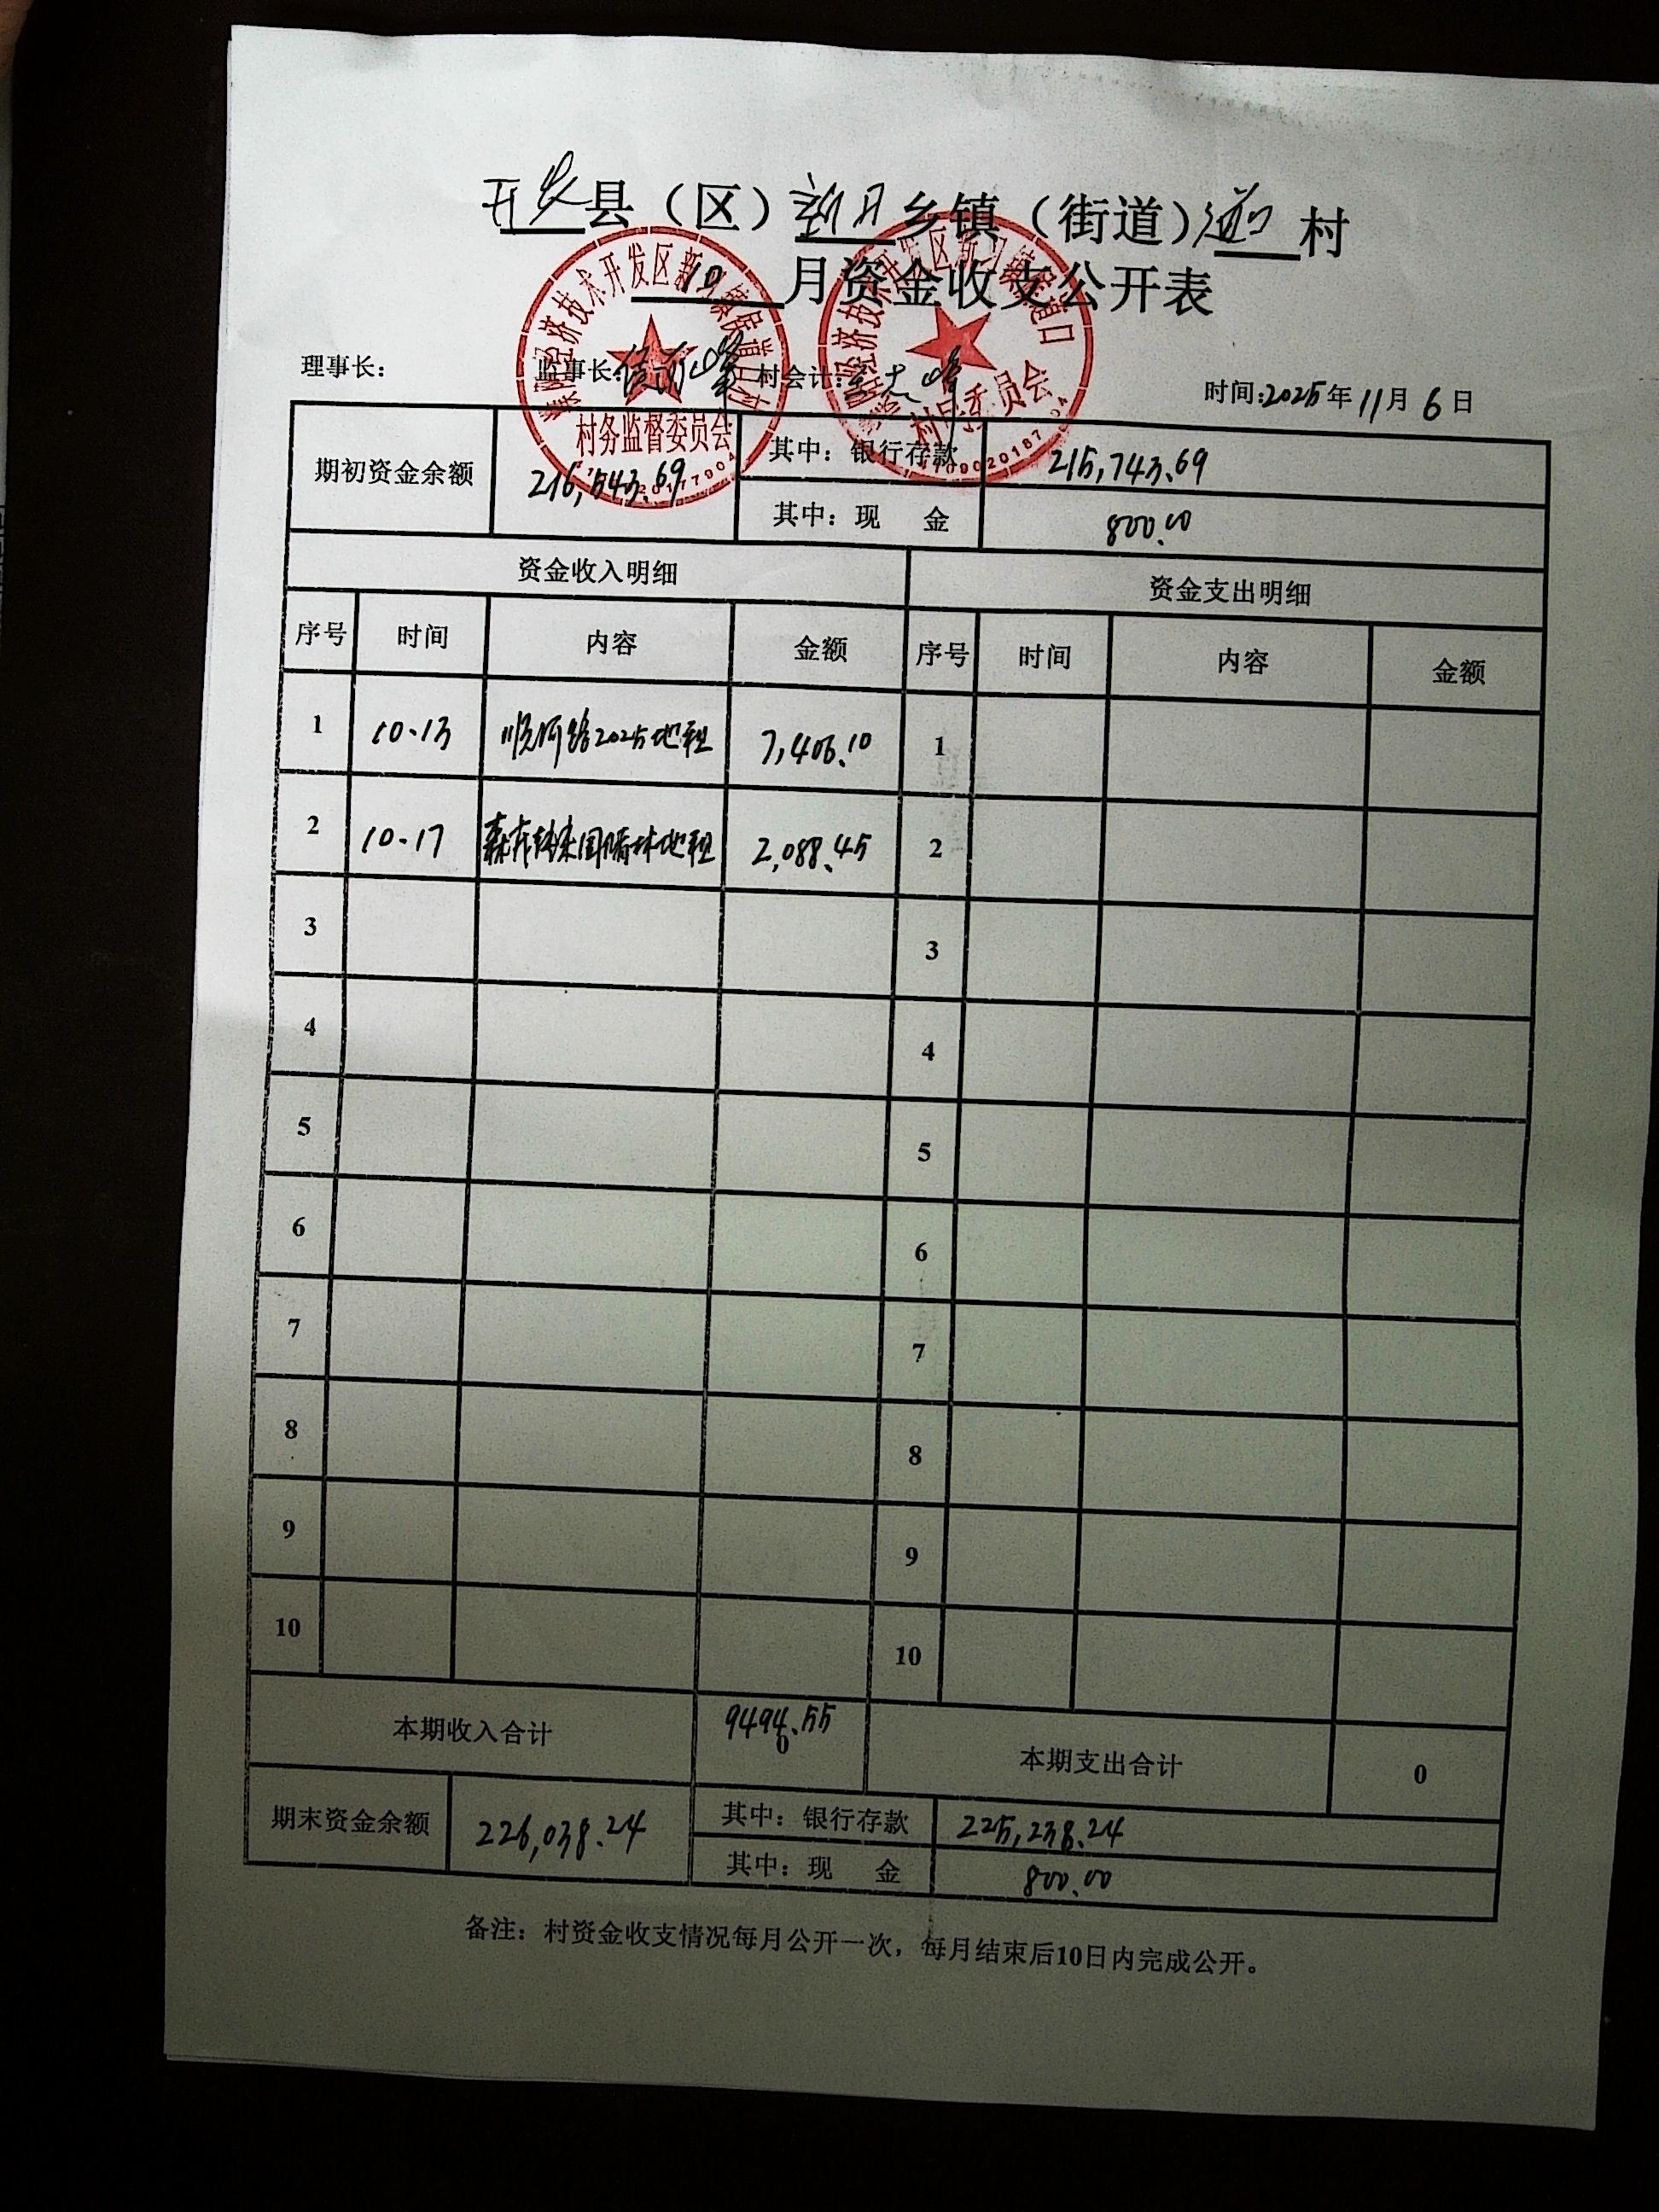 开发县（区）新习乡镇（街道）道口村
10月资金收支公开表
理事长： 监事长： 村会计： 时间：2025年11月6日
村务监督委员会
村民委员会
期初资金余额 216,543.69 其中：银行存款 215,743.69
其中：现 金 800.00
资金收入明细 资金支出明细
序号 时间 内容 金额 序号 时间 内容 金额
1 10.13 顺河路2025地租 7,406.10 1
2 10.17 国储林地租 2,088.45 2
3 3
4 4
5 5
6 6
7 7
8 8
9 9
10 10
本期收入合计 9494.55 本期支出合计 0
0
期末资金余额 226,038.24 其中：银行存款 225,238.24
其中：现 金 800.00
备注：村资金收支情况每月公开一次，每月结束后10日内完成公开。